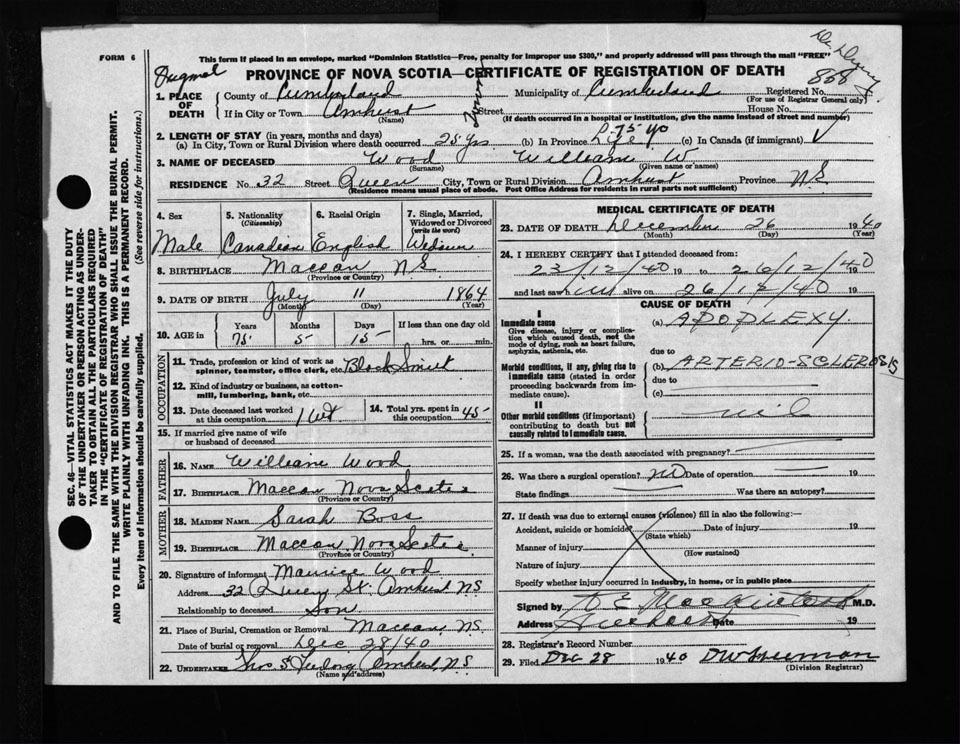 FORM 6
This form if placed in an envelope, marked "Dominion Statistics—Free, penalty for improper use $300," and properly addressed will pass through the mail "FREE"
PROVINCE OF NOVA SCOTIA—CERTIFICATE OF REGISTRATION OF DEATH
868
1. PLACE OF DEATH
County of Cumberland Municipality of Cumberland Registered No.
(For use of Registrar General only)
If in City or Town Amherst Street House No.
(Name) (If death occurred in a hospital or institution, give the name instead of street and number)
2. LENGTH OF STAY (in years, months and days)
(a) In City, Town or Rural Division where death occurred 25 yrs (b) In Province Life 75 yo (c) In Canada (if immigrant)
3. NAME OF DECEASED Wood William W.
(Surname) (Given name or names)
RESIDENCE No. 32 Street Queen City, Town or Rural Division Amherst Province N S
(Residence means usual place of abode. Post Office Address for residents in rural parts not sufficient)
4. Sex Male
5. Nationality (Citizenship) Canadian
6. Racial Origin English
7. Single, Married, Widowed or Divorced (write the word)
8. BIRTHPLACE Maccan N S.
(Province or Country)
9. DATE OF BIRTH July 11 1864
(Month) (Day) (Year)
10. AGE in Years Months Days If less than one day old
75 5 15 hrs. or min.
OCCUPATION
11. Trade, profession or kind of work as spinner, teamster, office clerk, etc. Black Smith
12. Kind of industry or business, as cotton-mill, lumbering, bank, etc.
13. Date deceased last worked at this occupation
14. Total yrs. spent in this occupation 45
15. If married give name of wife or husband of deceased
FATHER
16. NAME William Wood
17. BIRTHPLACE Maccan Nova Scotia
(Province or Country)
MOTHER
18. MAIDEN NAME Sarah Boss
19. BIRTHPLACE Maccan Nova Scotia
(Province or Country)
20. Signature of informant Maurice Wood
Address 32 Queen St. Amherst N.S
Relationship to deceased Son
21. Place of Burial, Cremation or Removal Maccan N.S
Date of burial or removal Dec 28/40
22. UNDERTAKER Amherst N S
(Name and address)
MEDICAL CERTIFICATE OF DEATH
23. DATE OF DEATH December 26 1940
(Month) (Day) (Year)
24. I HEREBY CERTIFY that I attended deceased from:
23/12/40 19 to 26/12/40 19
and last saw him alive on 26/12/40 19
CAUSE OF DEATH
I
Immediate cause
Give disease, injury or complication which caused death, not the mode of dying, such as heart failure, asphyxia, asthenia, etc.
(a) APOPLEXY.
due to
Morbid conditions, if any, giving rise to immediate cause (stated in order proceeding backwards from immediate cause).
(b) ARTERIO-SCLEROSIS
due to
(c)
II
Other morbid conditions (if important) contributing to death but not causally related to immediate cause.
nil
25. If a woman, was the death associated with pregnancy?
26. Was there a surgical operation? NO Date of operation 19
State findings Was there an autopsy?
27. If death was due to external causes (violence) fill in also the following:—
Accident, suicide or homicide Date of injury 19
(State which)
Manner of injury
(How sustained)
Nature of injury
Specify whether injury occurred in industry, in home, or in public place
Signed by M.D.
Address Amherst Date 19
28. Registrar's Record Number
29. Filed Dec 28 1940
(Division Registrar)
SEC. 46—VITAL STATISTICS ACT MAKES IT THE DUTY
OF THE UNDERTAKER OR PERSON ACTING AS UNDERTAKER TO OBTAIN ALL THE PARTICULARS REQUIRED
IN THE "CERTIFICATE OF REGISTRATION OF DEATH"
AND TO FILE THE SAME WITH THE DIVISION REGISTRAR WHO SHALL ISSUE THE BURIAL PERMIT.
WRITE PLAINLY WITH UNFADING INK. THIS IS A PERMANENT RECORD.
Every item of information should be carefully supplied. (See reverse side for instructions.)